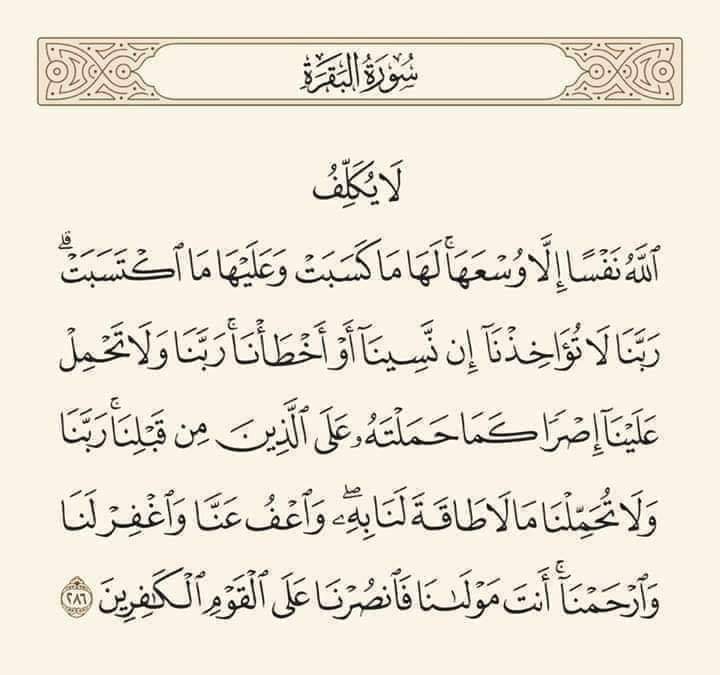 سُورَةُ البَقَرَةِ
لَا يُكَلِّفُ
ٱللَّهُ نَفْسًا إِلَّا وُسْعَهَاۚ لَهَا مَا كَسَبَتْ وَعَلَيْهَا مَا ٱكْتَسَبَتْۗ
رَبَّنَا لَا تُؤَاخِذْنَآ إِن نَّسِينَآ أَوْ أَخْطَأْنَاۚ رَبَّنَا وَلَا تَحْمِلْ
عَلَيْنَآ إِصْرًا كَمَا حَمَلْتَهُۥ عَلَى ٱلَّذِينَ مِن قَبْلِنَاۚ رَبَّنَا
وَلَا تُحَمِّلْنَا مَا لَا طَاقَةَ لَنَا بِهِۦۖ وَٱعْفُ عَنَّا وَٱغْفِرْ لَنَا
وَٱرْحَمْنَآۚ أَنتَ مَوْلَىٰنَا فَٱنصُرْنَا عَلَى ٱلْقَوْمِ ٱلْكَٰفِرِينَ ٢٨٦